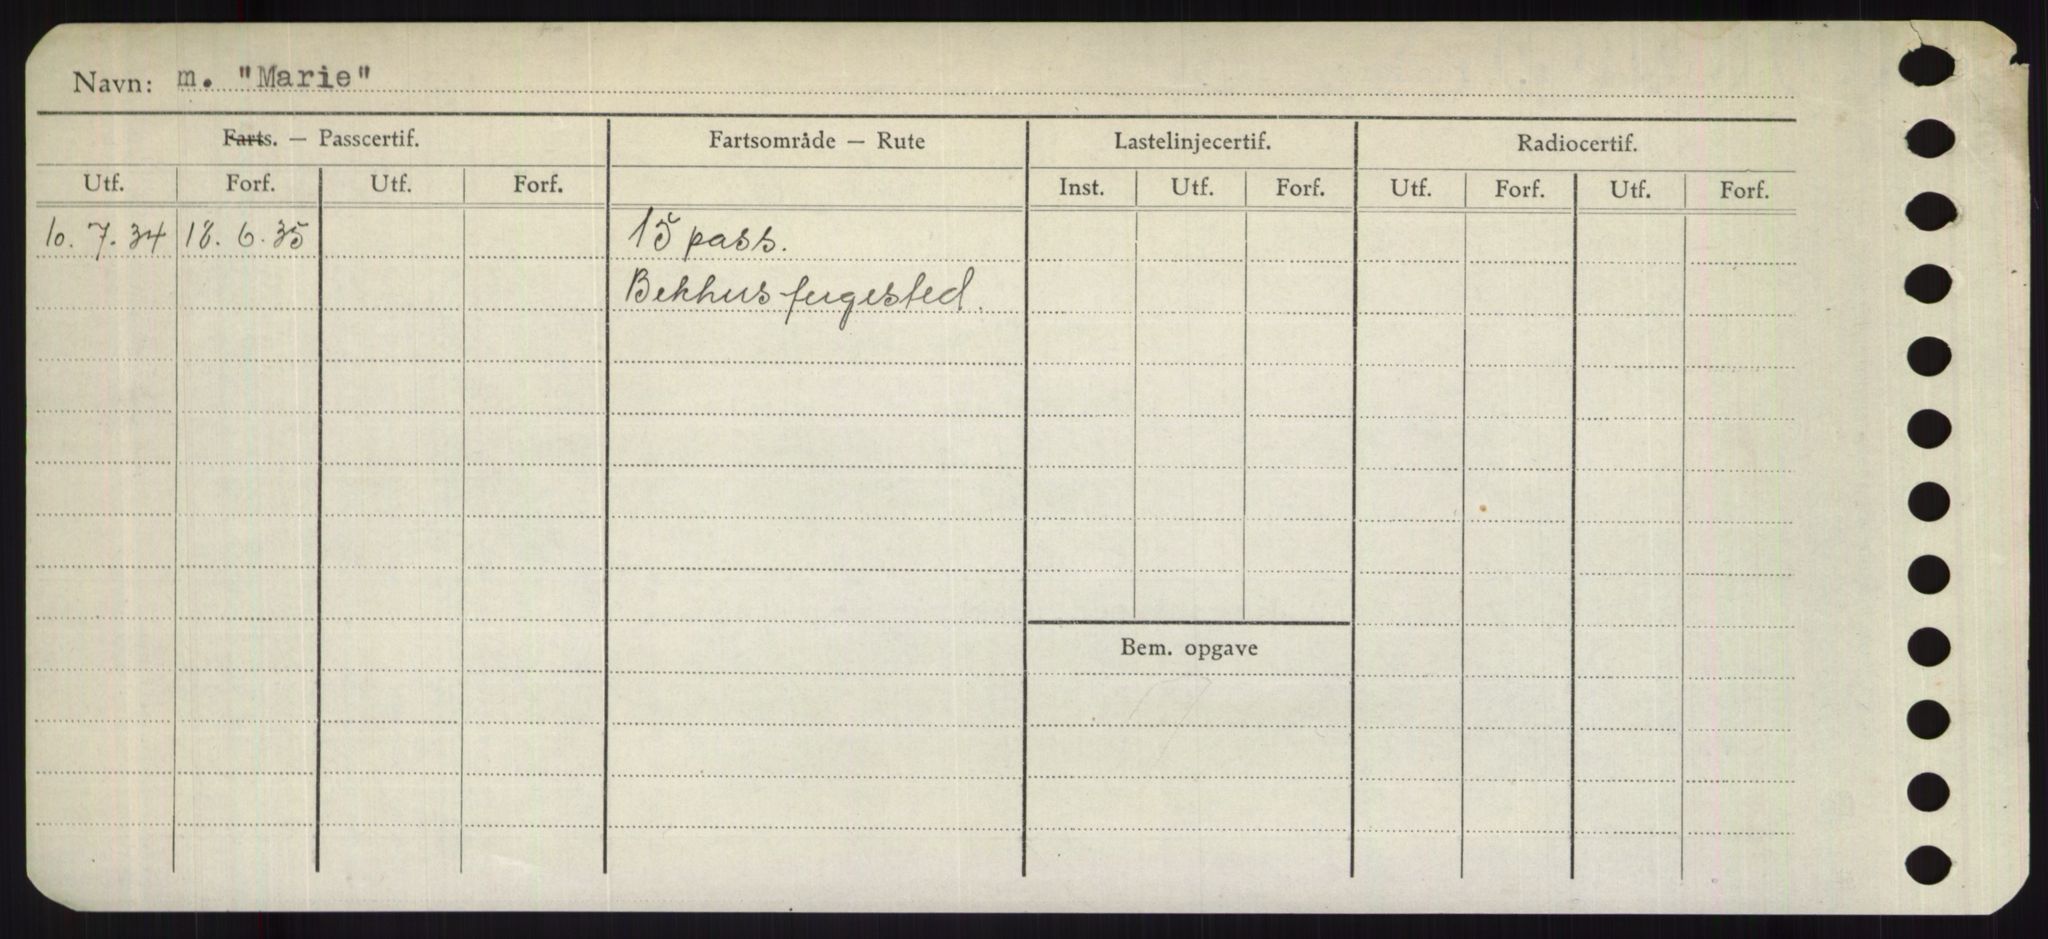 Navn: m. "Marie"
Farts. — Passcertif. Fartsområde — Rute Lastelinjecertif. Radiocertif.
Utf. Forf. Utf. Forf. Inst. Utf. Forf. Utf. Forf. Utf. Forf.
10. 7. 34 18. 6. 35 15 pass.
Bekhus fergested.
Bem. opgave